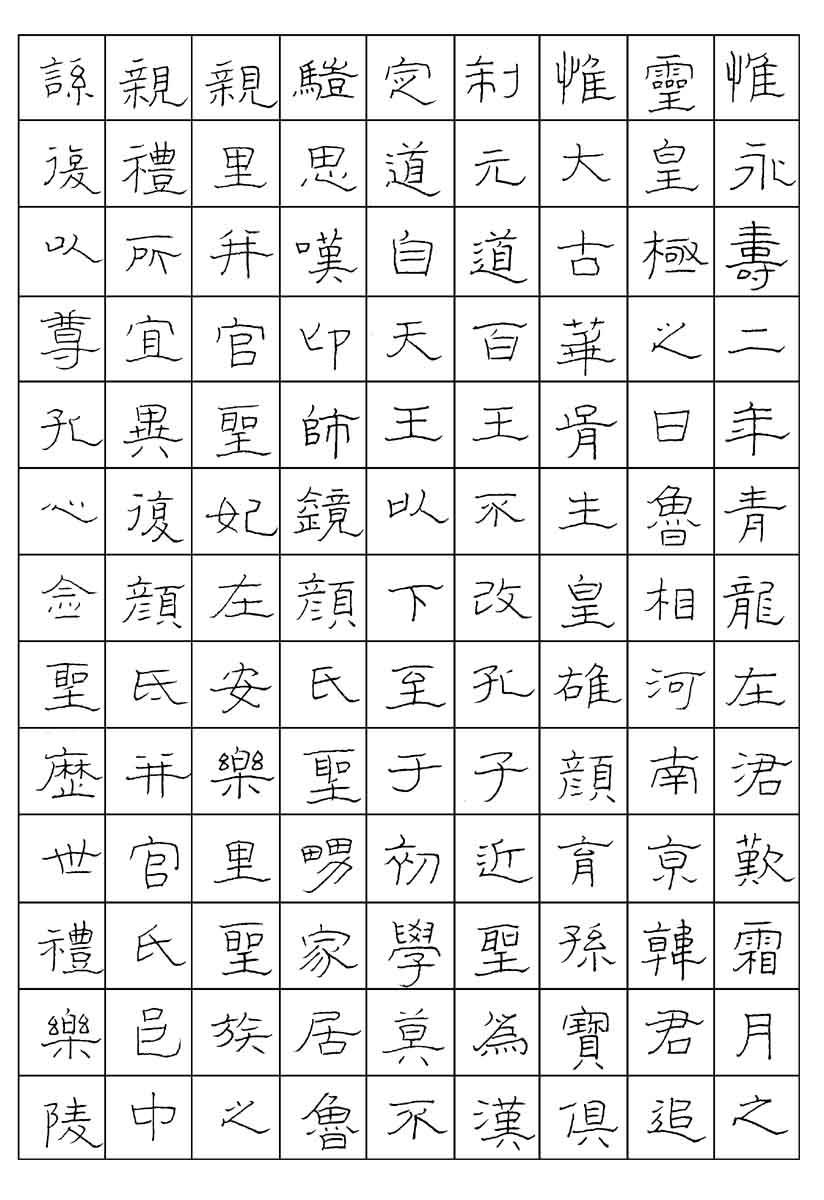 惟永壽二年青龍在涒歎霜月之
靈皇極之日魯相河南京韓君追
惟大古華胥生皇雄顏育孫寶俱
制元道百王不改孔子近聖為漢
定道自天王以下至于初學莫不
驥思嘆卬師鏡顏氏聖舅家居魯
親里并官聖妃在安樂里聖族之
親禮所宜異復顏氏并官氏邑中
繇復以尊孔心念聖歷世禮樂陵